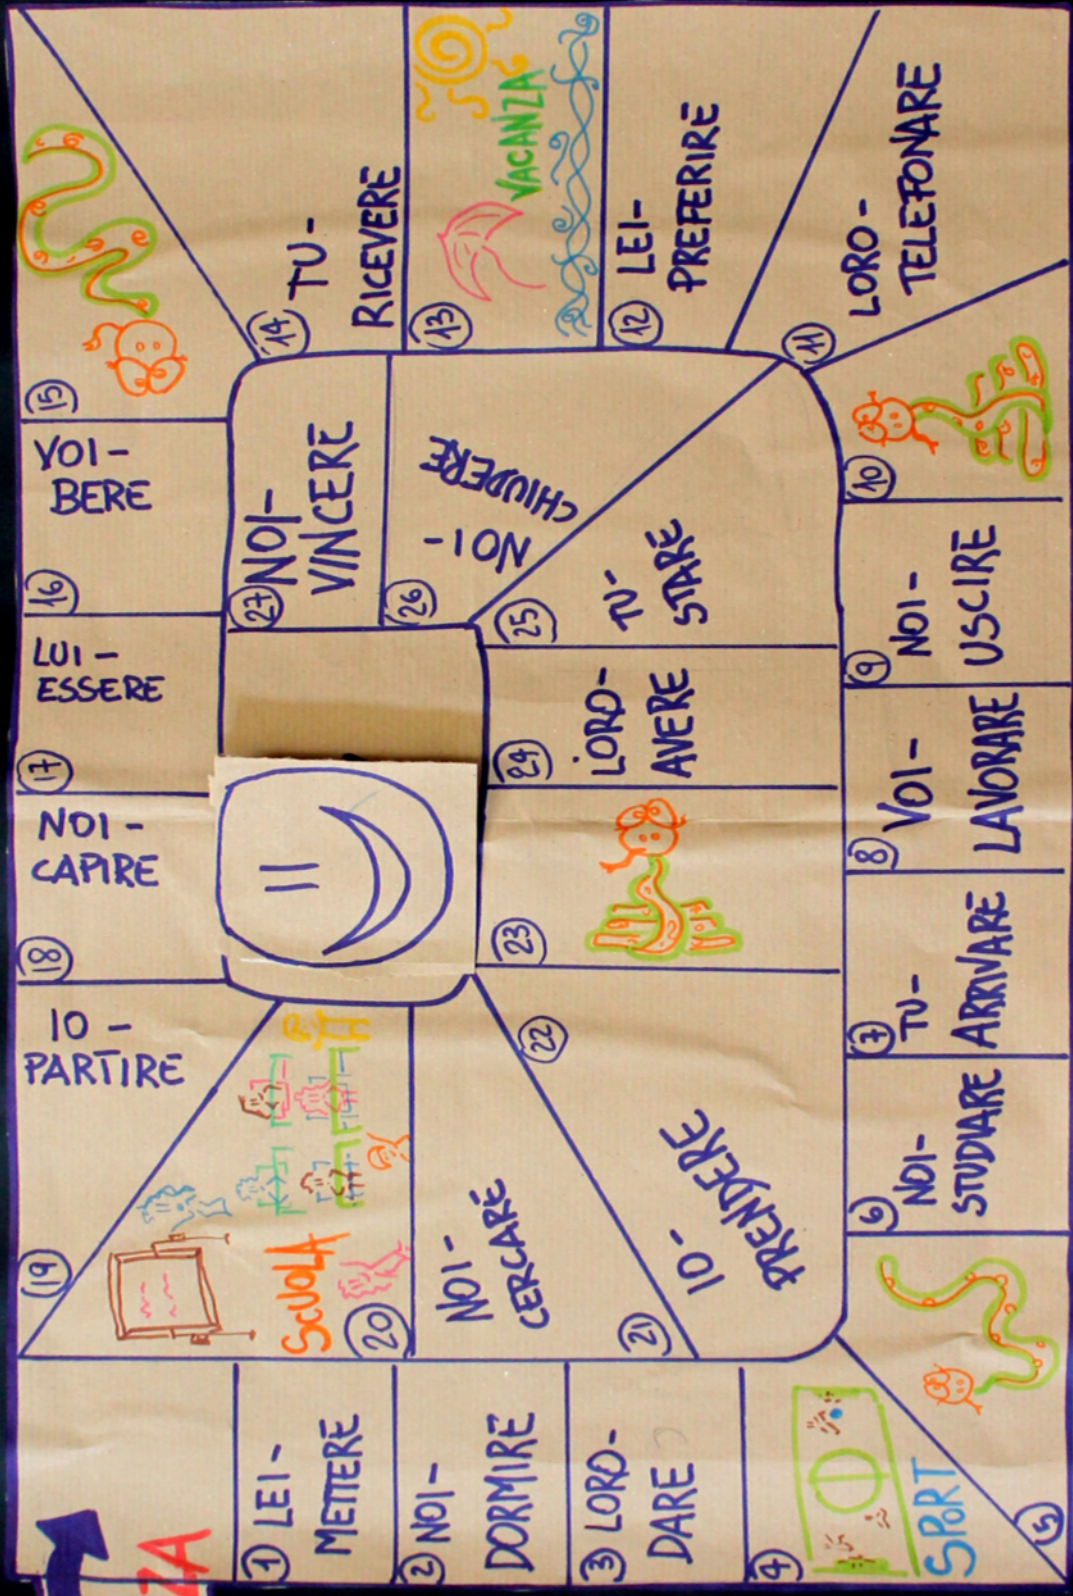 ZA
1 LEI-
METTERE
2 NOI-
DORMIRE
3 LORO-
DARE
4
SPORT
5
6 NOI-
STUDIARE
7 TU-
ARRIVARE
8 VOI-
LAVORARE
9 NOI-
USCIRE
10
11 LORO-
TELEFONARE
12 LEI-
PREFERIRE
13 VACANZA
14 TU-
RICEVERE
15
16 VOI-
BERE
17 LUI-
ESSERE
18 NOI-
CAPIRE
19 IO-
PARTIRE
20 SCUOLA
21 NOI-
CERCARE
22 IO-
PRENDERE
23
24 LORO-
AVERE
25 TU-
STARE
26 NOI-
CHIUDERE
27 NOI-
VINCERE